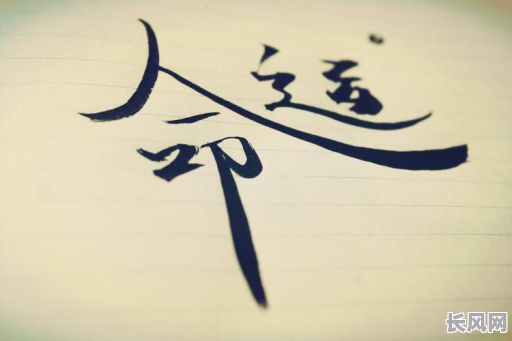 命运
长风网